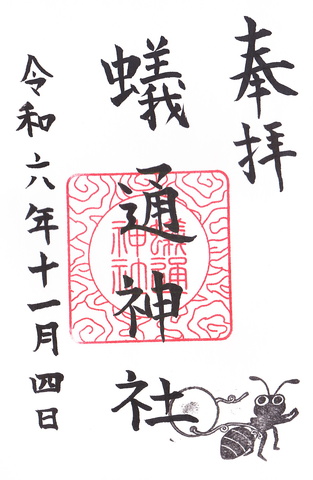 奉拝
蟻通神社
令和六年十一月四日
蟻通
神社